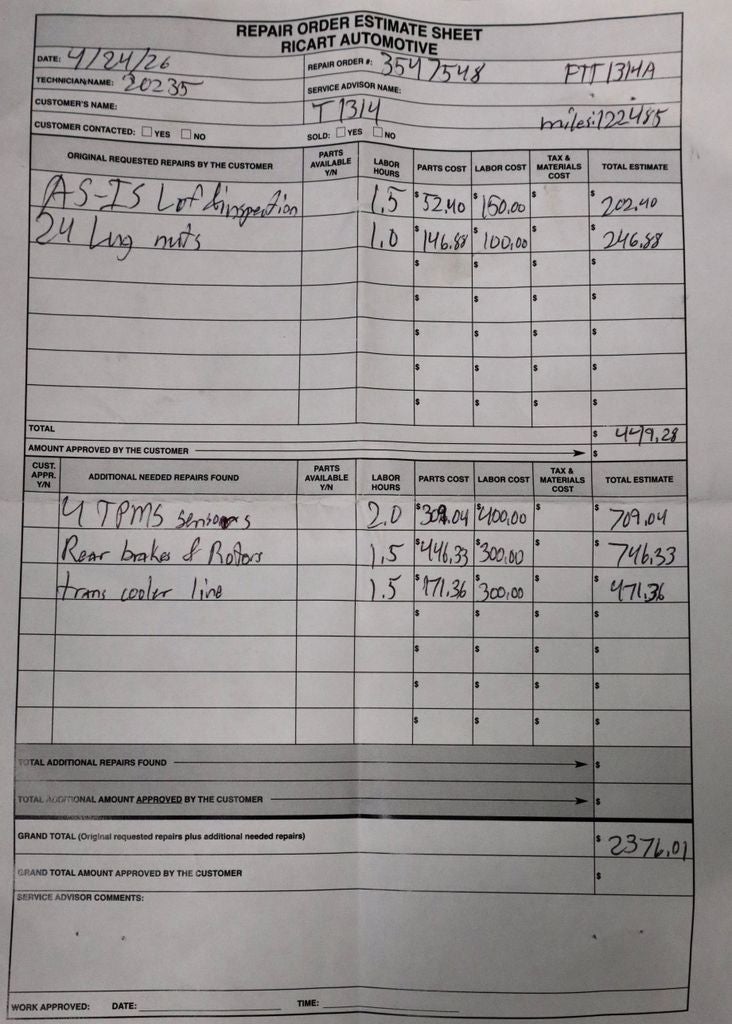 REPAIR ORDER ESTIMATE SHEET
RICART AUTOMOTIVE
DATE: 4/24/26 REPAIR ORDER #: 3547548 PTT1314A
TECHNICIAN NAME: 20235 SERVICE ADVISOR NAME:
CUSTOMER'S NAME: T1314 miles:122485
CUSTOMER CONTACTED: YES NO SOLD: YES NO
ORIGINAL REQUESTED REPAIRS BY THE CUSTOMER PARTS AVAILABLE Y/N LABOR HOURS PARTS COST LABOR COST TAX & MATERIALS COST TOTAL ESTIMATE
AS-IS Lof & inspection 1.5 $52.40 $150.00 $ $202.40
24 Lug nuts 1.0 $146.88 $100.00 $ $246.88
$ $ $ $
$ $ $ $
$ $ $ $
$ $ $ $
$ $ $ $
TOTAL $449.28
AMOUNT APPROVED BY THE CUSTOMER $
CUST. APPR. Y/N ADDITIONAL NEEDED REPAIRS FOUND PARTS AVAILABLE Y/N LABOR HOURS PARTS COST LABOR COST TAX & MATERIALS COST TOTAL ESTIMATE
4 TPMS sensors 2.0 $309.04 $400.00 $ $709.04
Rear brakes & Rotors 1.5 $446.33 $300.00 $ $746.33
trans cooler line 1.5 $171.36 $300.00 $ $471.36
$ $ $ $
$ $ $ $
$ $ $ $
$ $ $ $
TOTAL ADDITIONAL REPAIRS FOUND $
TOTAL ADDITIONAL AMOUNT APPROVED BY THE CUSTOMER $
GRAND TOTAL (Original requested repairs plus additional needed repairs) $2376.01
GRAND TOTAL AMOUNT APPROVED BY THE CUSTOMER $
SERVICE ADVISOR COMMENTS:
WORK APPROVED: DATE: TIME: